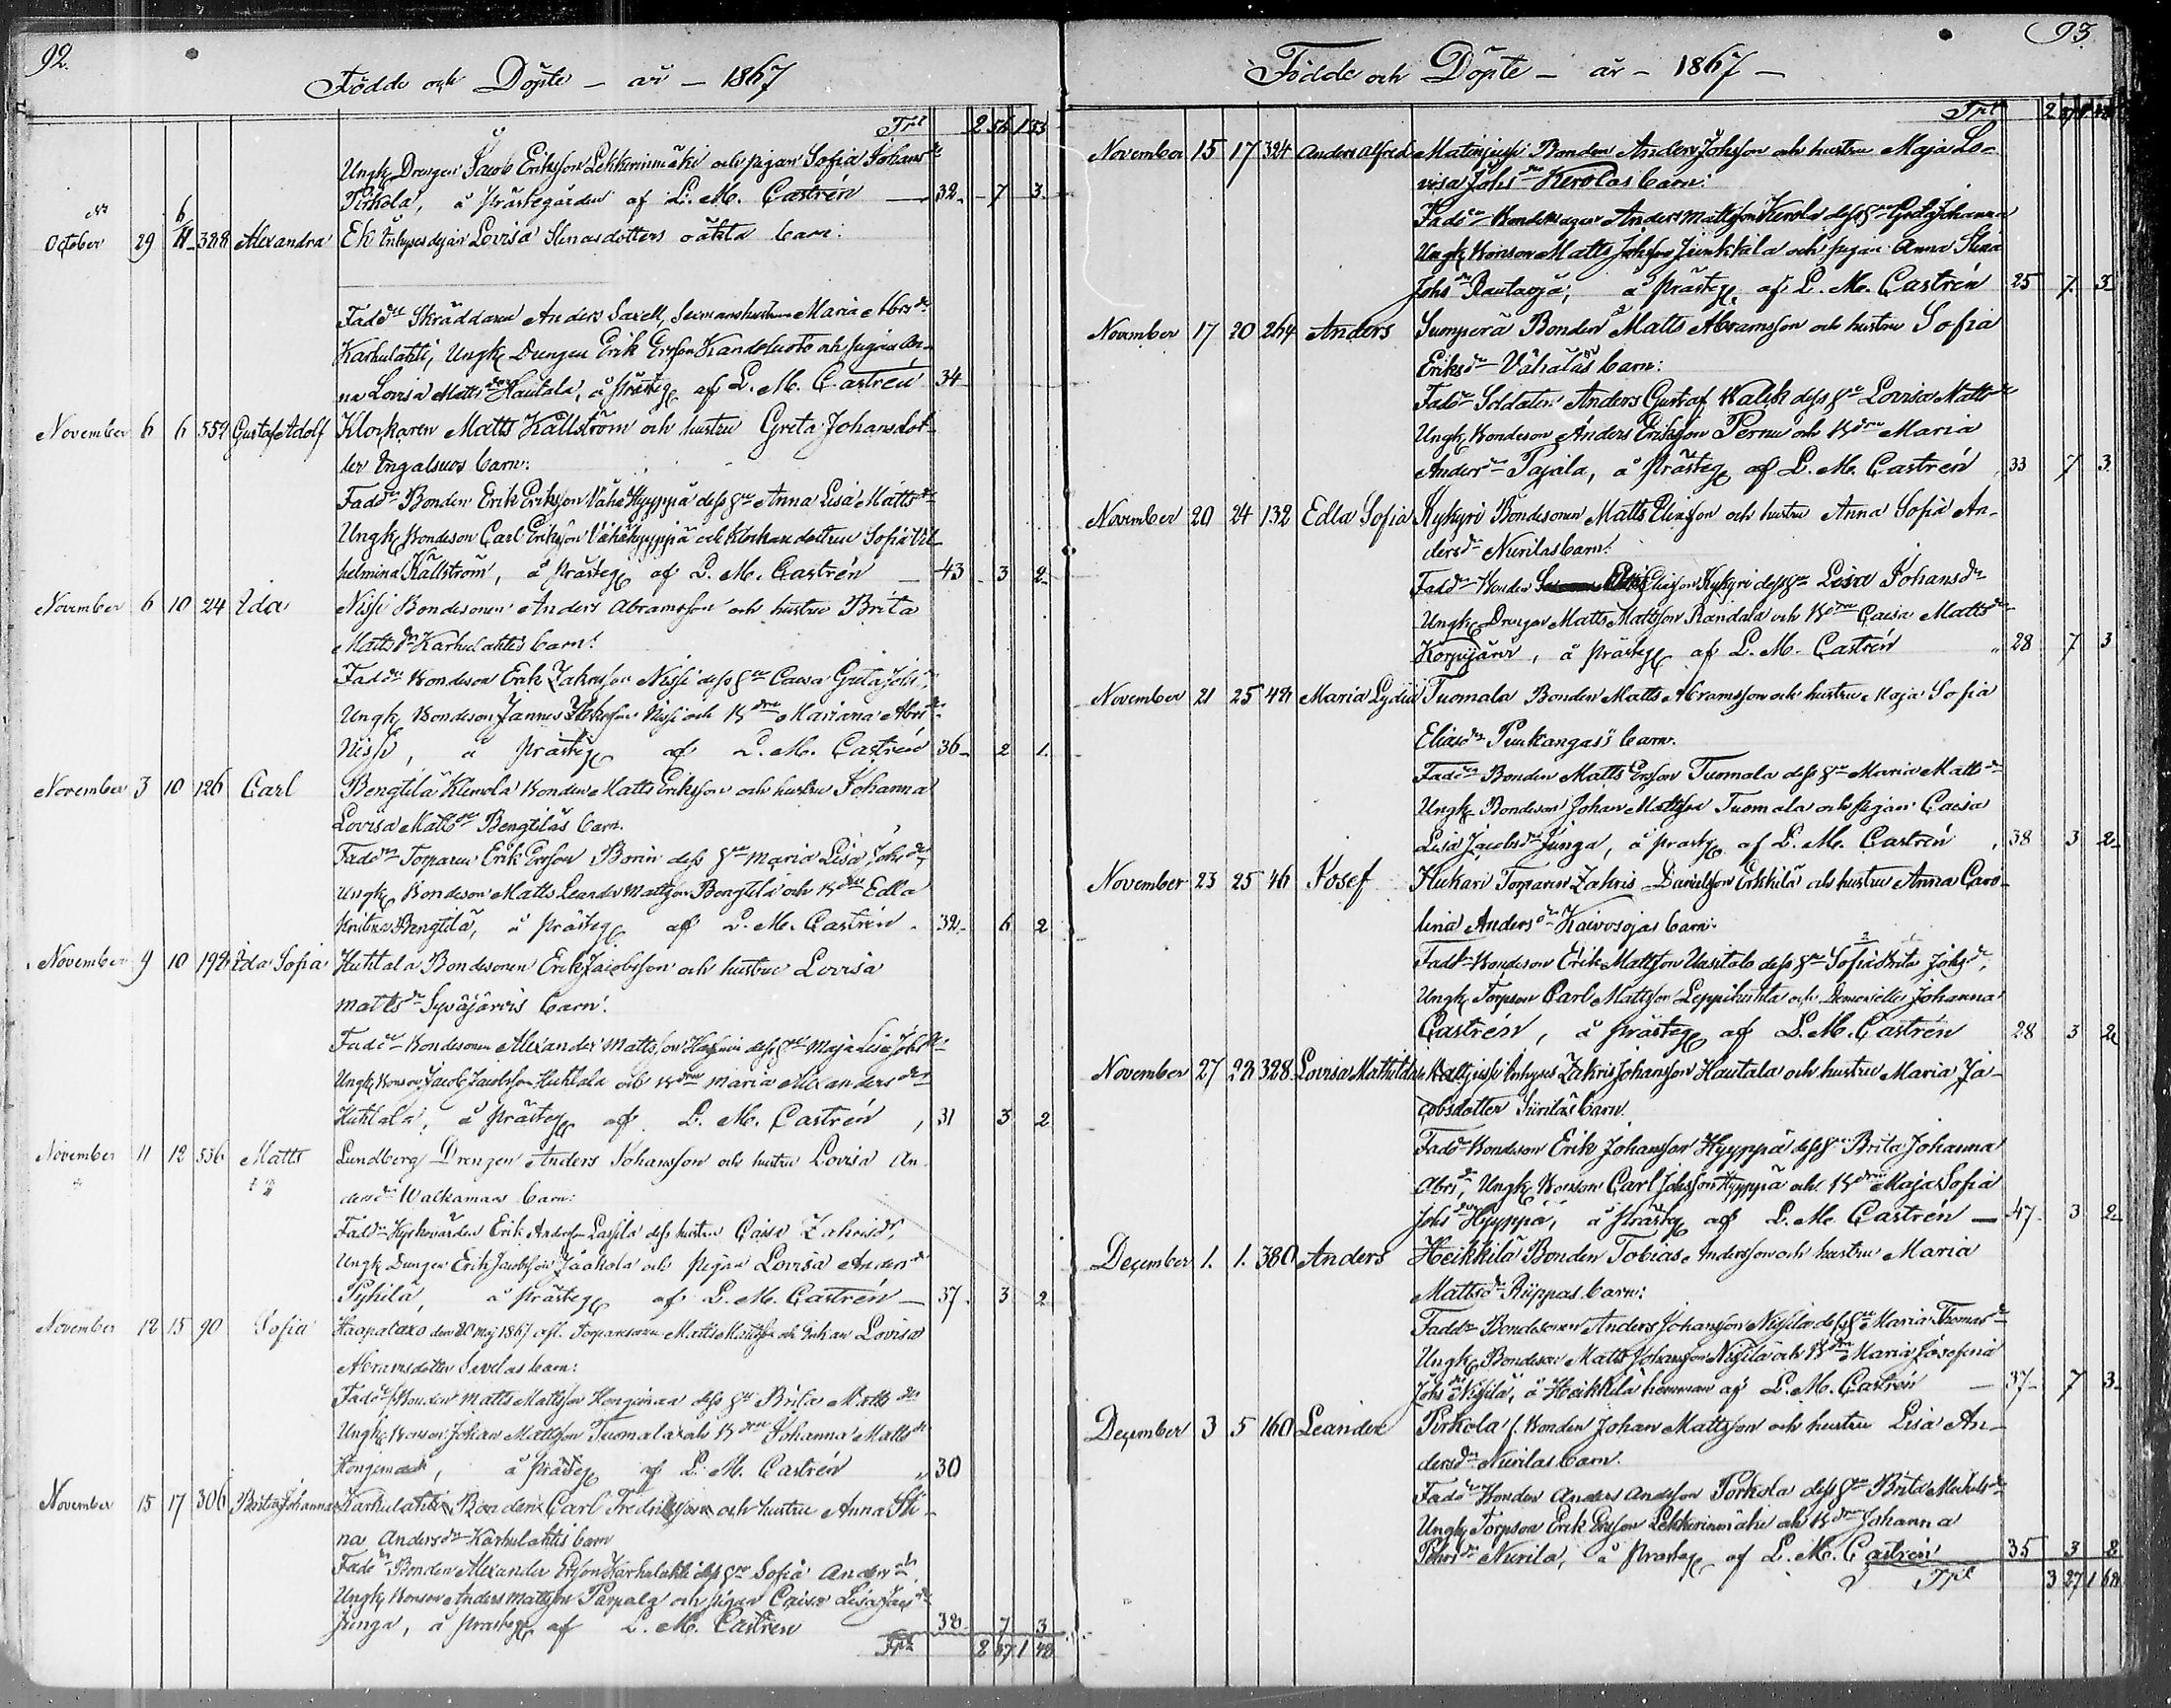 92.
Födde och Döpte - år - 1867
Trt 2 56 1 33
Ungk Drengen Jacob Eriksson Lekkerinmäki och pigan Sofia Johansdr
Pirkola, å prästegården af L. M. Castrén — 32 - 7 3
October 29 6/11 388 Alexandra Ek Inhyses pigan Lovisa Stinas dotters oäkta barn:
Fadd Skräddaren Anders Saxell, hustru Maria Abrsdr
Karhulahti, Ungk Drengen Erik Ersson Kandelusto och pigan An-
na Lovisa Matts dotter Hautala, å prästeg af L. M. Castrén 34
November 6 6 552 Gustaf Adolf Klockaren Matts Källström och hustru Greta Johansdot-
ter Ingalsuos barn:
Fadd Bonden Erik Eriksson Vähä Hyyppä dess hu Anna Lisa Mattsdr
Ungk Bondeson Carl Eriksson Vähähyyppä och Klockaredottren Sofia Vil-
helmina Källström, å prästeg af L. M. Castrén — 43 - 3 2
November 6 10 24 Ida Nissi Bondesonen Anders Abramsson och hustru Brita
Mattsdr Karhulahtis barn:
Fadd Bondeson Erik Zakrisson Nissi dess hu Caisa Greta Johsdr,
Ungk Bondeson Jannes Nissi och Bdrn Mariana Abrsdr
Nissi, å prästeg af L. M. Castrén 36 - 2 1.
November 3 10 126 Carl Bengtilä Klemola Bonden Matts Eriksson och hustru Johanna
Lovisa Mattsdr Bengtiläs barn.
Fadd Torparen Erik Ersson Borin dess hu Maria Lisa Johsdr,
Ungk Bondeson Matts Leander Mattsson Bengtilä och Bdrn Edla
Kristina Bengtilä, å prästeg af L. M. Castrén. 32 - 6 2
November 9 10 192 Ida Sofia Huhtala Bondesonen Erik Jacobsson och hustru Lovisa
Mattsdr Syväjärvis barn:
Fadd Bondesonen Alexander Mattsson dess hu Maja Lisa Johsdr
Ungk Bonson Jacob Jacobsson Huhtala och Bdrn Maria Alexandersdr
Huhtala, å prästeg af L. M. Castrén, 31 3 2
November 11 12 556 Matts Lundberg Drengen Anders Johansson och hustru Lovisa An-
dersdr Walkamas barn:
Fadd Kyrkovärden Erik Andersson Lassila dess hustru Caisa Zakrisdr,
Ungk Drengen Erik Jacobsson Jäähola och Pigan Lovisa Andersdr
Pyhilä, å prästeg af L. M. Castrén — 37. 3 2
November 12 15 90 Sofia Haapataxo den 20 Maj 1867 afl. Torparesonen Matts Mattsson och Enkan Lovisa
Abramsdotter barn:
Fadd Bonden Matts Mattsson Hongimaa dess hu Brita Mattsdr
Ungk Bonson Johan Mattsson Tuomala och Bdrn Johanna Mattsdr
Hongimaa, å prästeg af L. M. Castrén „ 30
November 15 17 306 Brita Johanna Karhulahti Bonden Carl Fredriksson och hustru Anna Sti-
na Andersdr Karhulahtis barn
Fadd Bonden Alexander Ersson Karhulahti dess hu Sofia Andersdr.
Ungk Bonson Anders Mattsson Parpala och pigan Caisa Lisa Jacsdr
Junga, å prästeg af L. M. Castrén 38 7 3
Trt 2 87 1 48
93.
Födde och Döpte - år - 1867 -
Trt 2 87 1 48
November 15 17 324 Anders Alfred Matinjussi Bonden Anders Johsson och hustru Maja Lo-
visa Johsdr Kerolas barn:
Fadd Bondemågen Anders Mattsson Kerola dess hu Greta Johanna
Ungk Bonson Matts Johsson Junkkila och pigan Anna Stina
Johsdr Rautaoja, å prästeg. af L. M. Castrén 25 7. 3
November 17 20 264 Anders Sumperä Bonden Matts Abramsson och hustru Sofia
Eriksdr Vähäläs barn:
Fadd Soldaten Anders Gustaf Walik dess hu Lovisa Mattsdr
Ungk Bondeson Anders Eriksson Pernu och Bdrn Maria
Andersdr Pajala, å prästeg af L. M. Castrén, 33 7 3
November 20 24 132 Edla Sofia Kykyri Bondesonen Matts Eliasson och hustru Anna Sofia An-
dersdr Nurilas barn:
Fadd Bonden Eliasson Kykyri dess hu Lisa Johansdr
Ungk Drengen Matts Mattsson Randala och Bdrn Caisa Mattsdr
Korpijärvi, å prästeg af L. M. Castrén „ 28 7 3
November 21 25 42 Maria Lydia Tuomala Bonden Matts Abramsson och hustru Maja Sofia
Eliasdr Puukangas's barn.
Fadd Bonden Matts Ersson Tuomala dess hu Maria Mattsdr
Ungk Bondeson Johan Mattsson Tuomala och pigan Caisa
Lisa Jacobsdr Junga, å prästeg af L. M. Castrén, 38 3 2
November 23 25 46 Josef Hukari Torparen Zakris Danielsson Erkkilä och hustru Anna Caro-
lina Andersdr Kaivosojas barn:
Fadd Bondeson Erik Mattsson Uusitalo dess hu Sofia Brita Johsdr,
Ungk Torpson Carl Mattsson Leppihuhta och Demoiselle Johanna
Castrén, å prästeg af L. M. Castrén 28 3 2
November 27 28 328 Lovisa Mathilda Matinjussi Inhyses Zakris Johansson Hautala och hustru Maria Ja-
cobsdotter Siiriläs barn.
Fadd Bondeson Erik Johansson Hyyppä dess hu Brita Johanna
Abrsdr, Ungk Bonson Carl Johsson Hyyppä och Bdrn Maja Sofia
Johsdr Hyyppä, å prästeg af L. M. Castrén — 47. 3 2
December 1. 1. 380 Anders Heikkilä Bonden Tobias Andersson och hustru Maria
Mattsdr Riippas barn:
Fadd Bondesonen Anders Johansson Nissilä dess hu Maria Thomasdr
Ungk Bondeson Matts Johansson Nissilä och Bdrn Maria Josefina
Johsdr Nissilä, å Heikkilä hemman af L. M. Castrén — 37 - 7 3
December 3 5 160 Leander Porkola f. Bonden Johan Mattsson och hustru Lisa An-
dersdr Nurilas barn.
Fadd Bonden Anders Andersson Porkola dess hu Brita Michelsdr
Ungk Torpson Erik Ersson Lekkerinmäki och Bdrn Johanna
Johsdr Nurila, å prästeg af L. M. Castrén 35 3 2
Trt 3 27 1 68